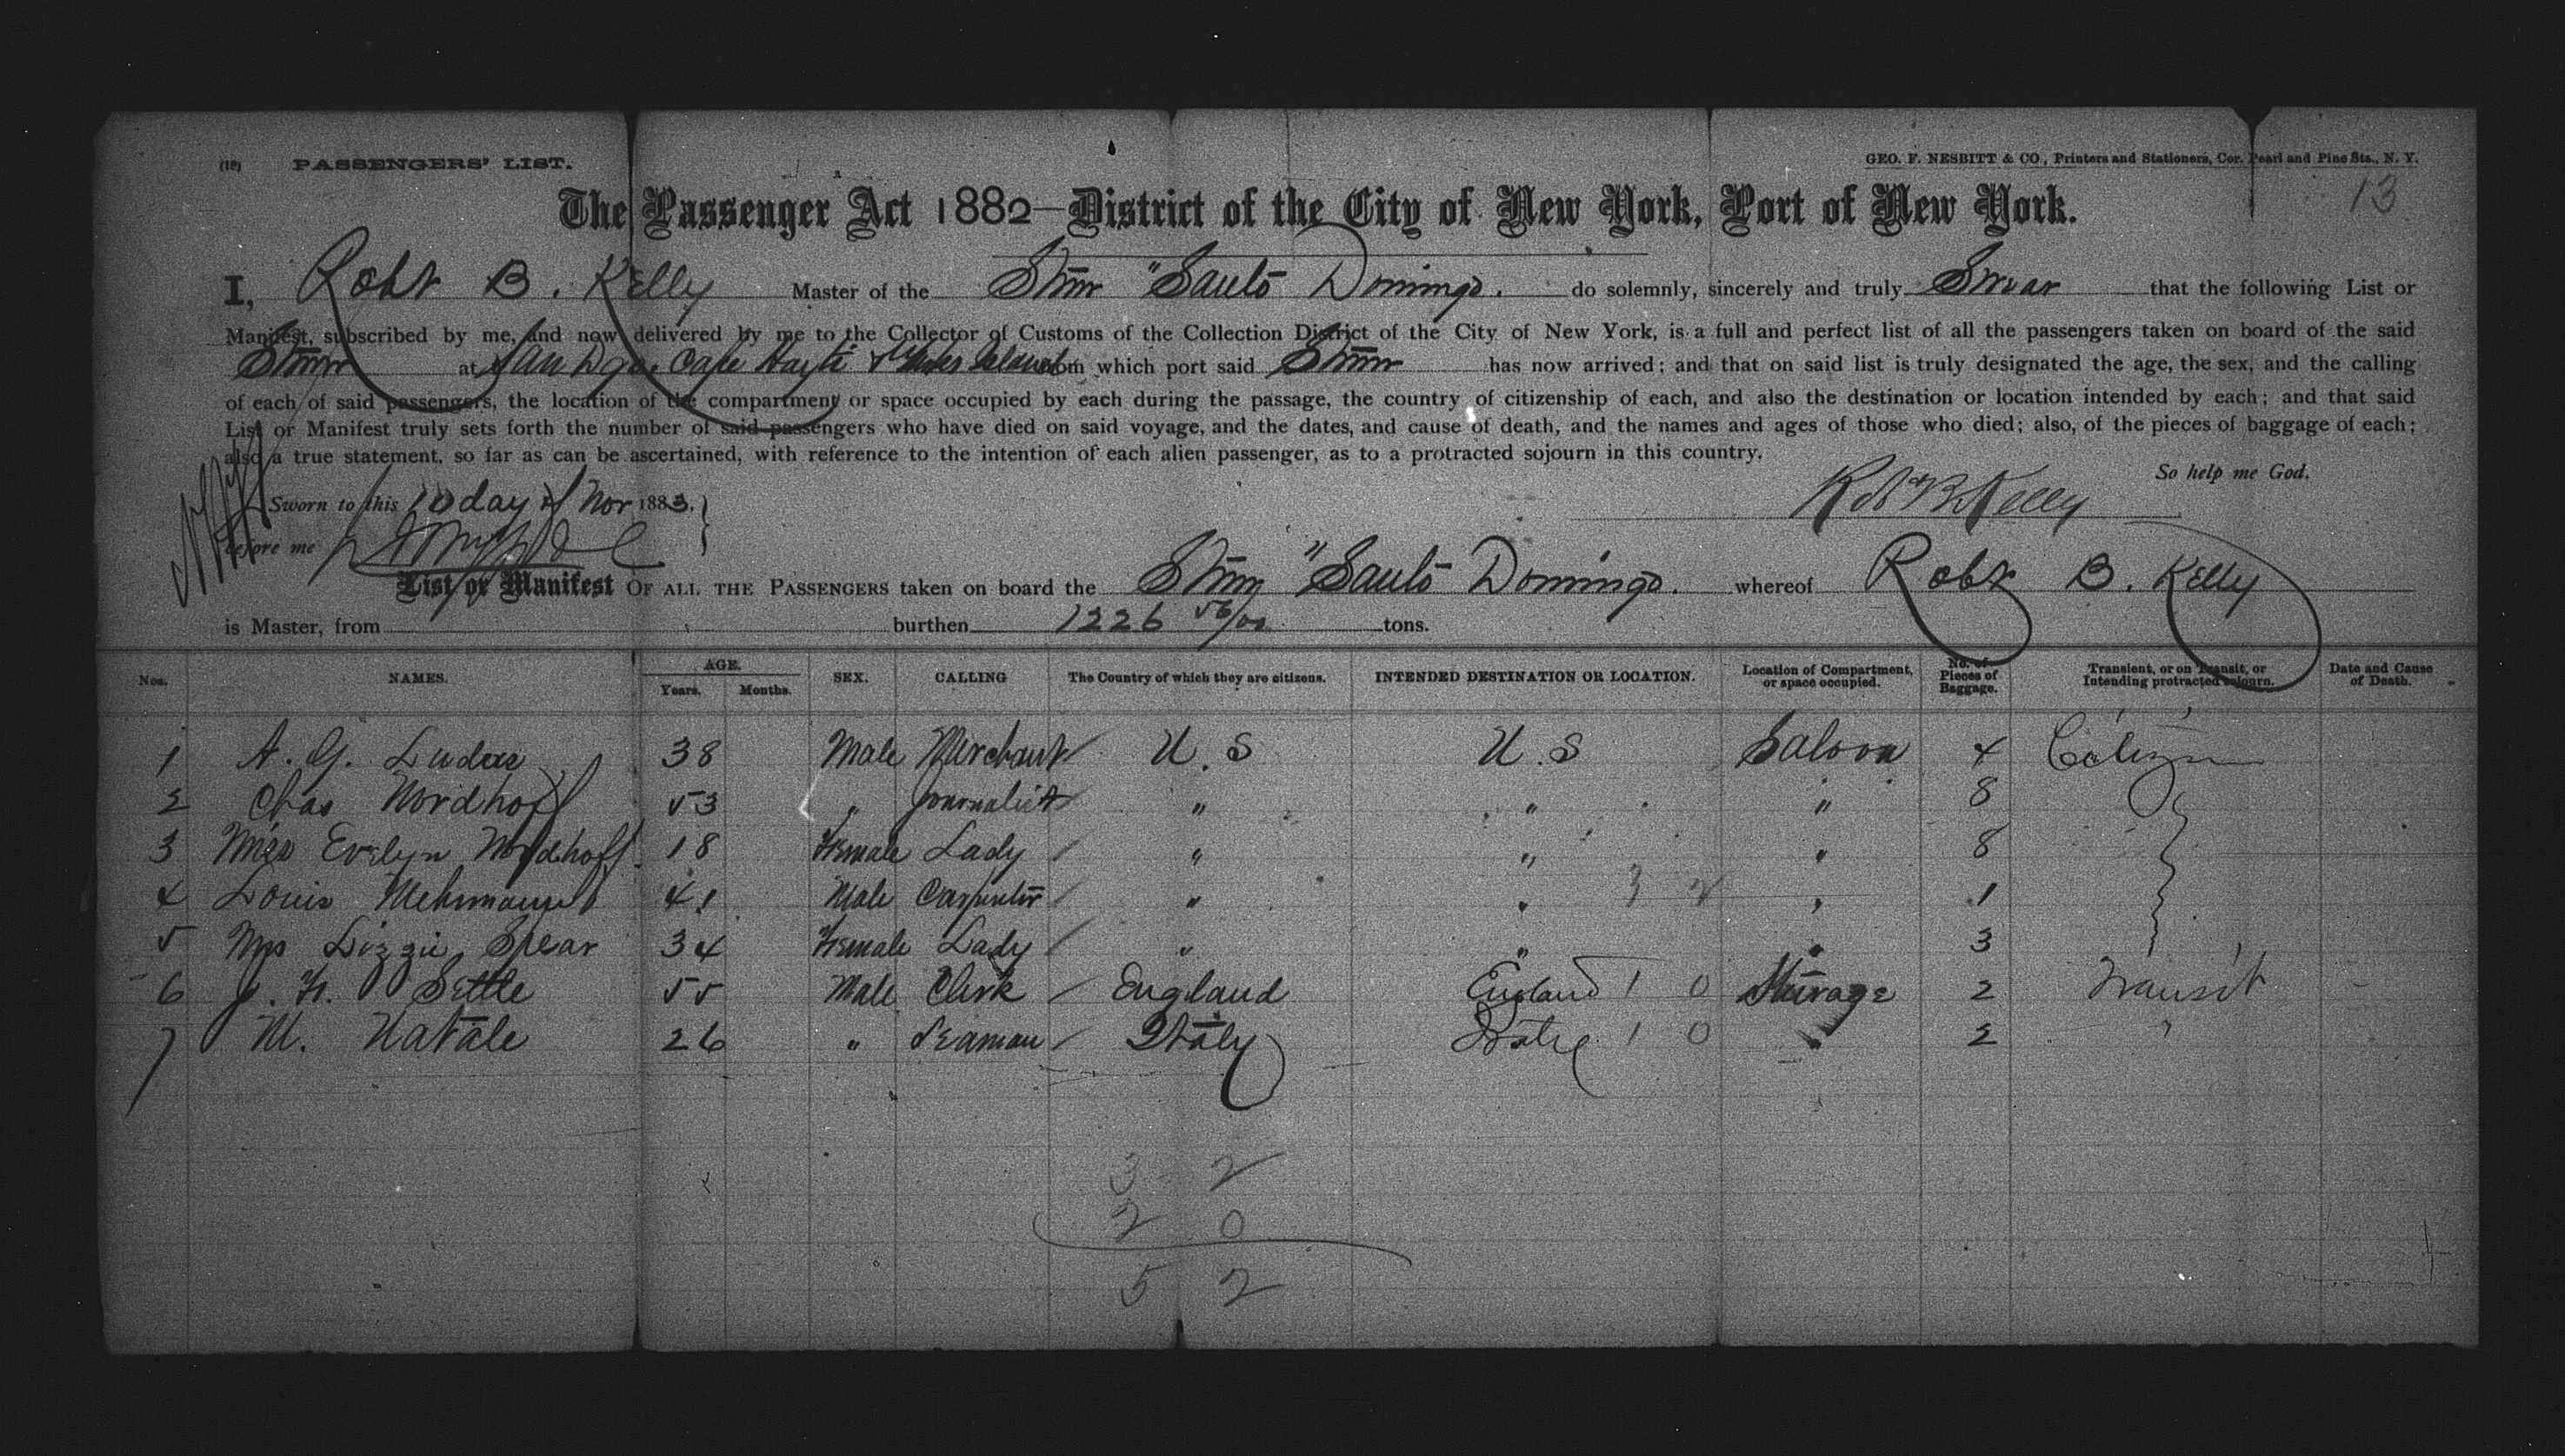 (18) PASSENGERS' LIST.
GEO. F. NESBITT & CO., Printers and Stationers, Cor. Pearl and Pine Sts., N. Y.
13
The Passenger Act 1882—District of the City of New York, Port of New York.
I, Robt B. Kelly Master of the Stmr "Santo Domingo. do solemnly, sincerely and truly Swear that the following List or
Manifest, subscribed by me, and now delivered by me to the Collector of Customs of the Collection District of the City of New York, is a full and perfect list of all the passengers taken on board of the said
Stmr at San Dgo, Cape Hayti & Turks Island from which port said Stmr has now arrived; and that on said list is truly designated the age, the sex, and the calling
of each of said passengers, the location of the compartment or space occupied by each during the passage, the country of citizenship of each, and also the destination or location intended by each; and that said
List or Manifest truly sets forth the number of said passengers who have died on said voyage, and the dates, and cause of death, and the names and ages of those who died; also, of the pieces of baggage of each;
also a true statement, so far as can be ascertained, with reference to the intention of each alien passenger, as to a protracted sojourn in this country.
So help me God.
Sworn to this 10 day of Nov 1883.
Robt B Kelly
before me
List or Manifest OF ALL THE PASSENGERS taken on board the Stmr "Santo Domingo. whereof Robt B. Kelly
is Master, from burthen 1226 56/100 tons.
Nos. NAMES. AGE. Years. Months. SEX. CALLING The Country of which they are citizens. INTENDED DESTINATION OR LOCATION. Location of Compartment, or space occupied. No. of Pieces of Baggage. Transient, or on Transit, or Intending protracted sojourn. Date and Cause of Death.
1 A. G. 38 Male Merchant U.S U.S Saloon 4 Citizen
2 Chas Nordhoff 53 " Journalist " " " 8
3 Miss Evelyn Nordhoff 18 Female Lady " " " 8
4 Louis 41 Male Carpenter " " 3 2 " 1
5 Mrs Lizzie Spear 34 Female Lady " " " 3
6 J. H. Settle 55 Male Clerk England England 1 0 Steerage 2 Transit
7 M. Natale 26 " Seaman Italy Italy 1 0 " 2 "
3 2
2 0
5 2